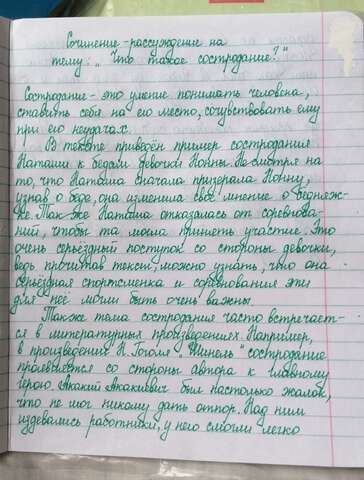 Сочинение-рассуждение на
тему: „Что такое сострадание?"
Сострадание - это умение понимать человека,
ставить себя на его место, сочувствовать ему
при его неудачах.
В тексте приведён пример сострадания
Наташи к бедам девочки Нонны. Несмотря на
то, что Наташа сначала призерала Нонну,
узнав о беде, она изменила своё мнение о бедняж-
ке. Так же Наташа отказалась от соревнова-
ний, чтобы та могла принять участие. Это
очень серьёзный поступок со стороны девочки,
ведь прочитав текст, можно узнать, что она
серьёзная спортсменка и соревнования эти
для неё могли быть очень важны.
Также тема сострадания часто встречает-
ся в литературных произведениях. Например,
в произведении Н. Гоголя „Шинель" сострадание
проявляется со стороны автора к главному
герою. Акакий Акакиевич был настолько жалок,
что не мог никому дать отпор. Над ним
издевались работники, у него смогли легко